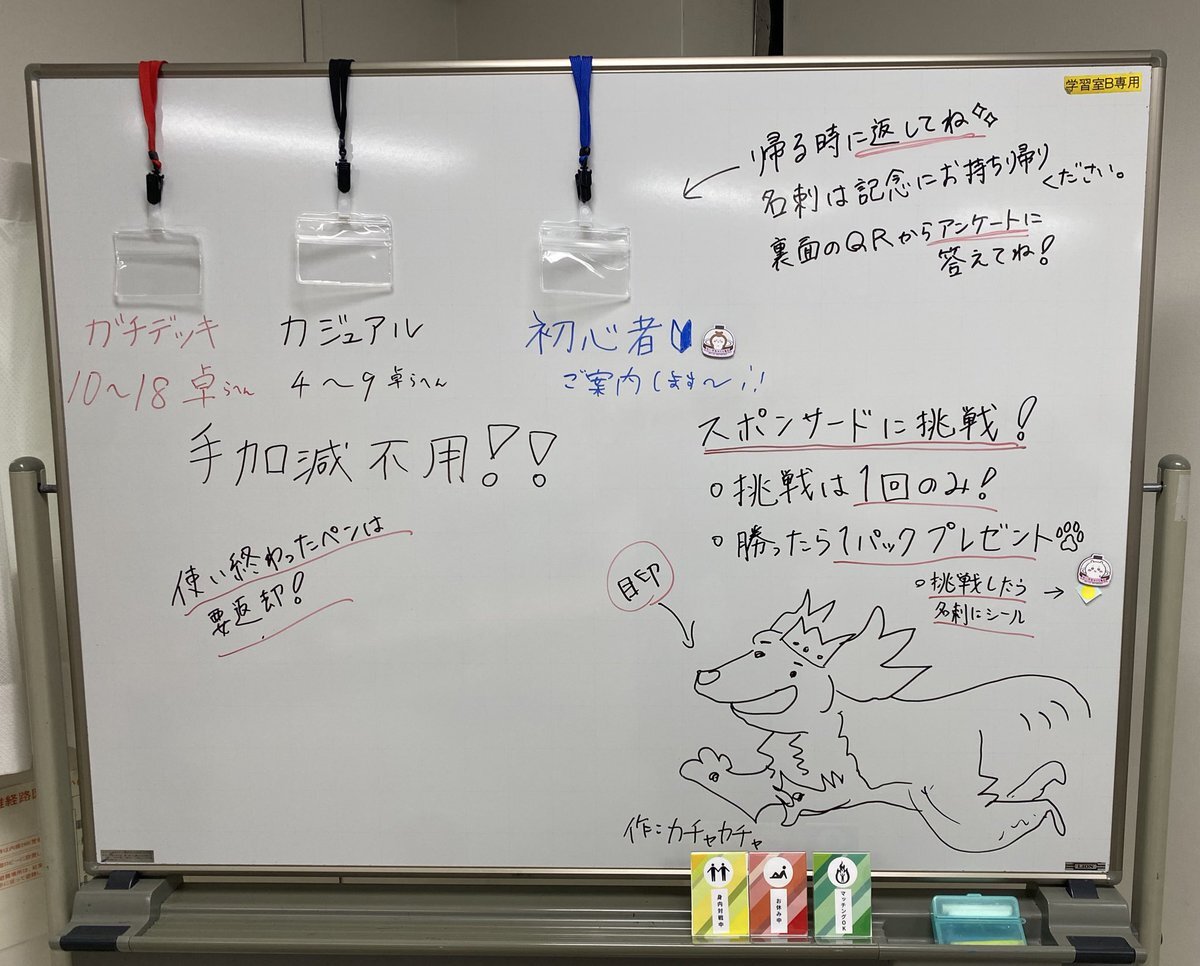 学習室B専用
帰る時に返してね
名刺は記念にお持ち帰り
ください。
裏面のQRからアンケートに
答えてね!
ガチデッキ
10〜18卓らへん
カジュアル
4〜9卓らへん
初心者
ご案内します〜!!
手加減不用!!
使い終わったペンは
要返却!
スポンサードに挑戦!
○挑戦は1回のみ!
○勝ったら1パックプレゼント
○挑戦したら
名刺にシール
目印
作:カチャカチャ
身内対戦中
お休み中
マッチングOK
LION